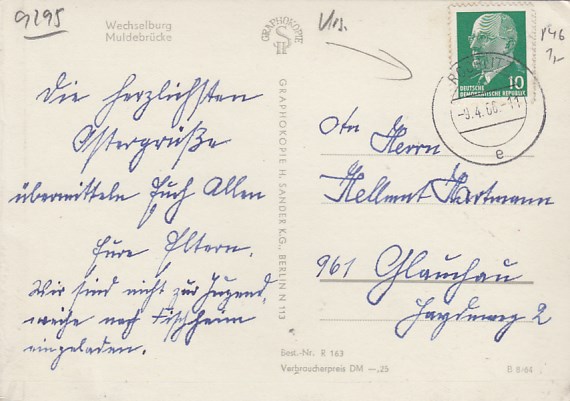 9295
Wechselburg
Muldebrücke
GRAPHOKOPIE
GRAPHOKOPIE H. SANDER K.G., BERLIN N 113
Die herzlichsten
Ostergrüße
übermitteln Euch Allen
Eure Eltern.
Wir sind nicht zur Jugend,
weihe nach Fischheim
eingeladen.
10
DEUTSCHE
DEMOKRATISCHE REPUBLIK
-9.4.66.-11
e
P46
1,-
An Herrn
Hellmut Hartmann
961 Glauchau
Best.-Nr. R 163
Verbraucherpreis DM —,25
B 8/64